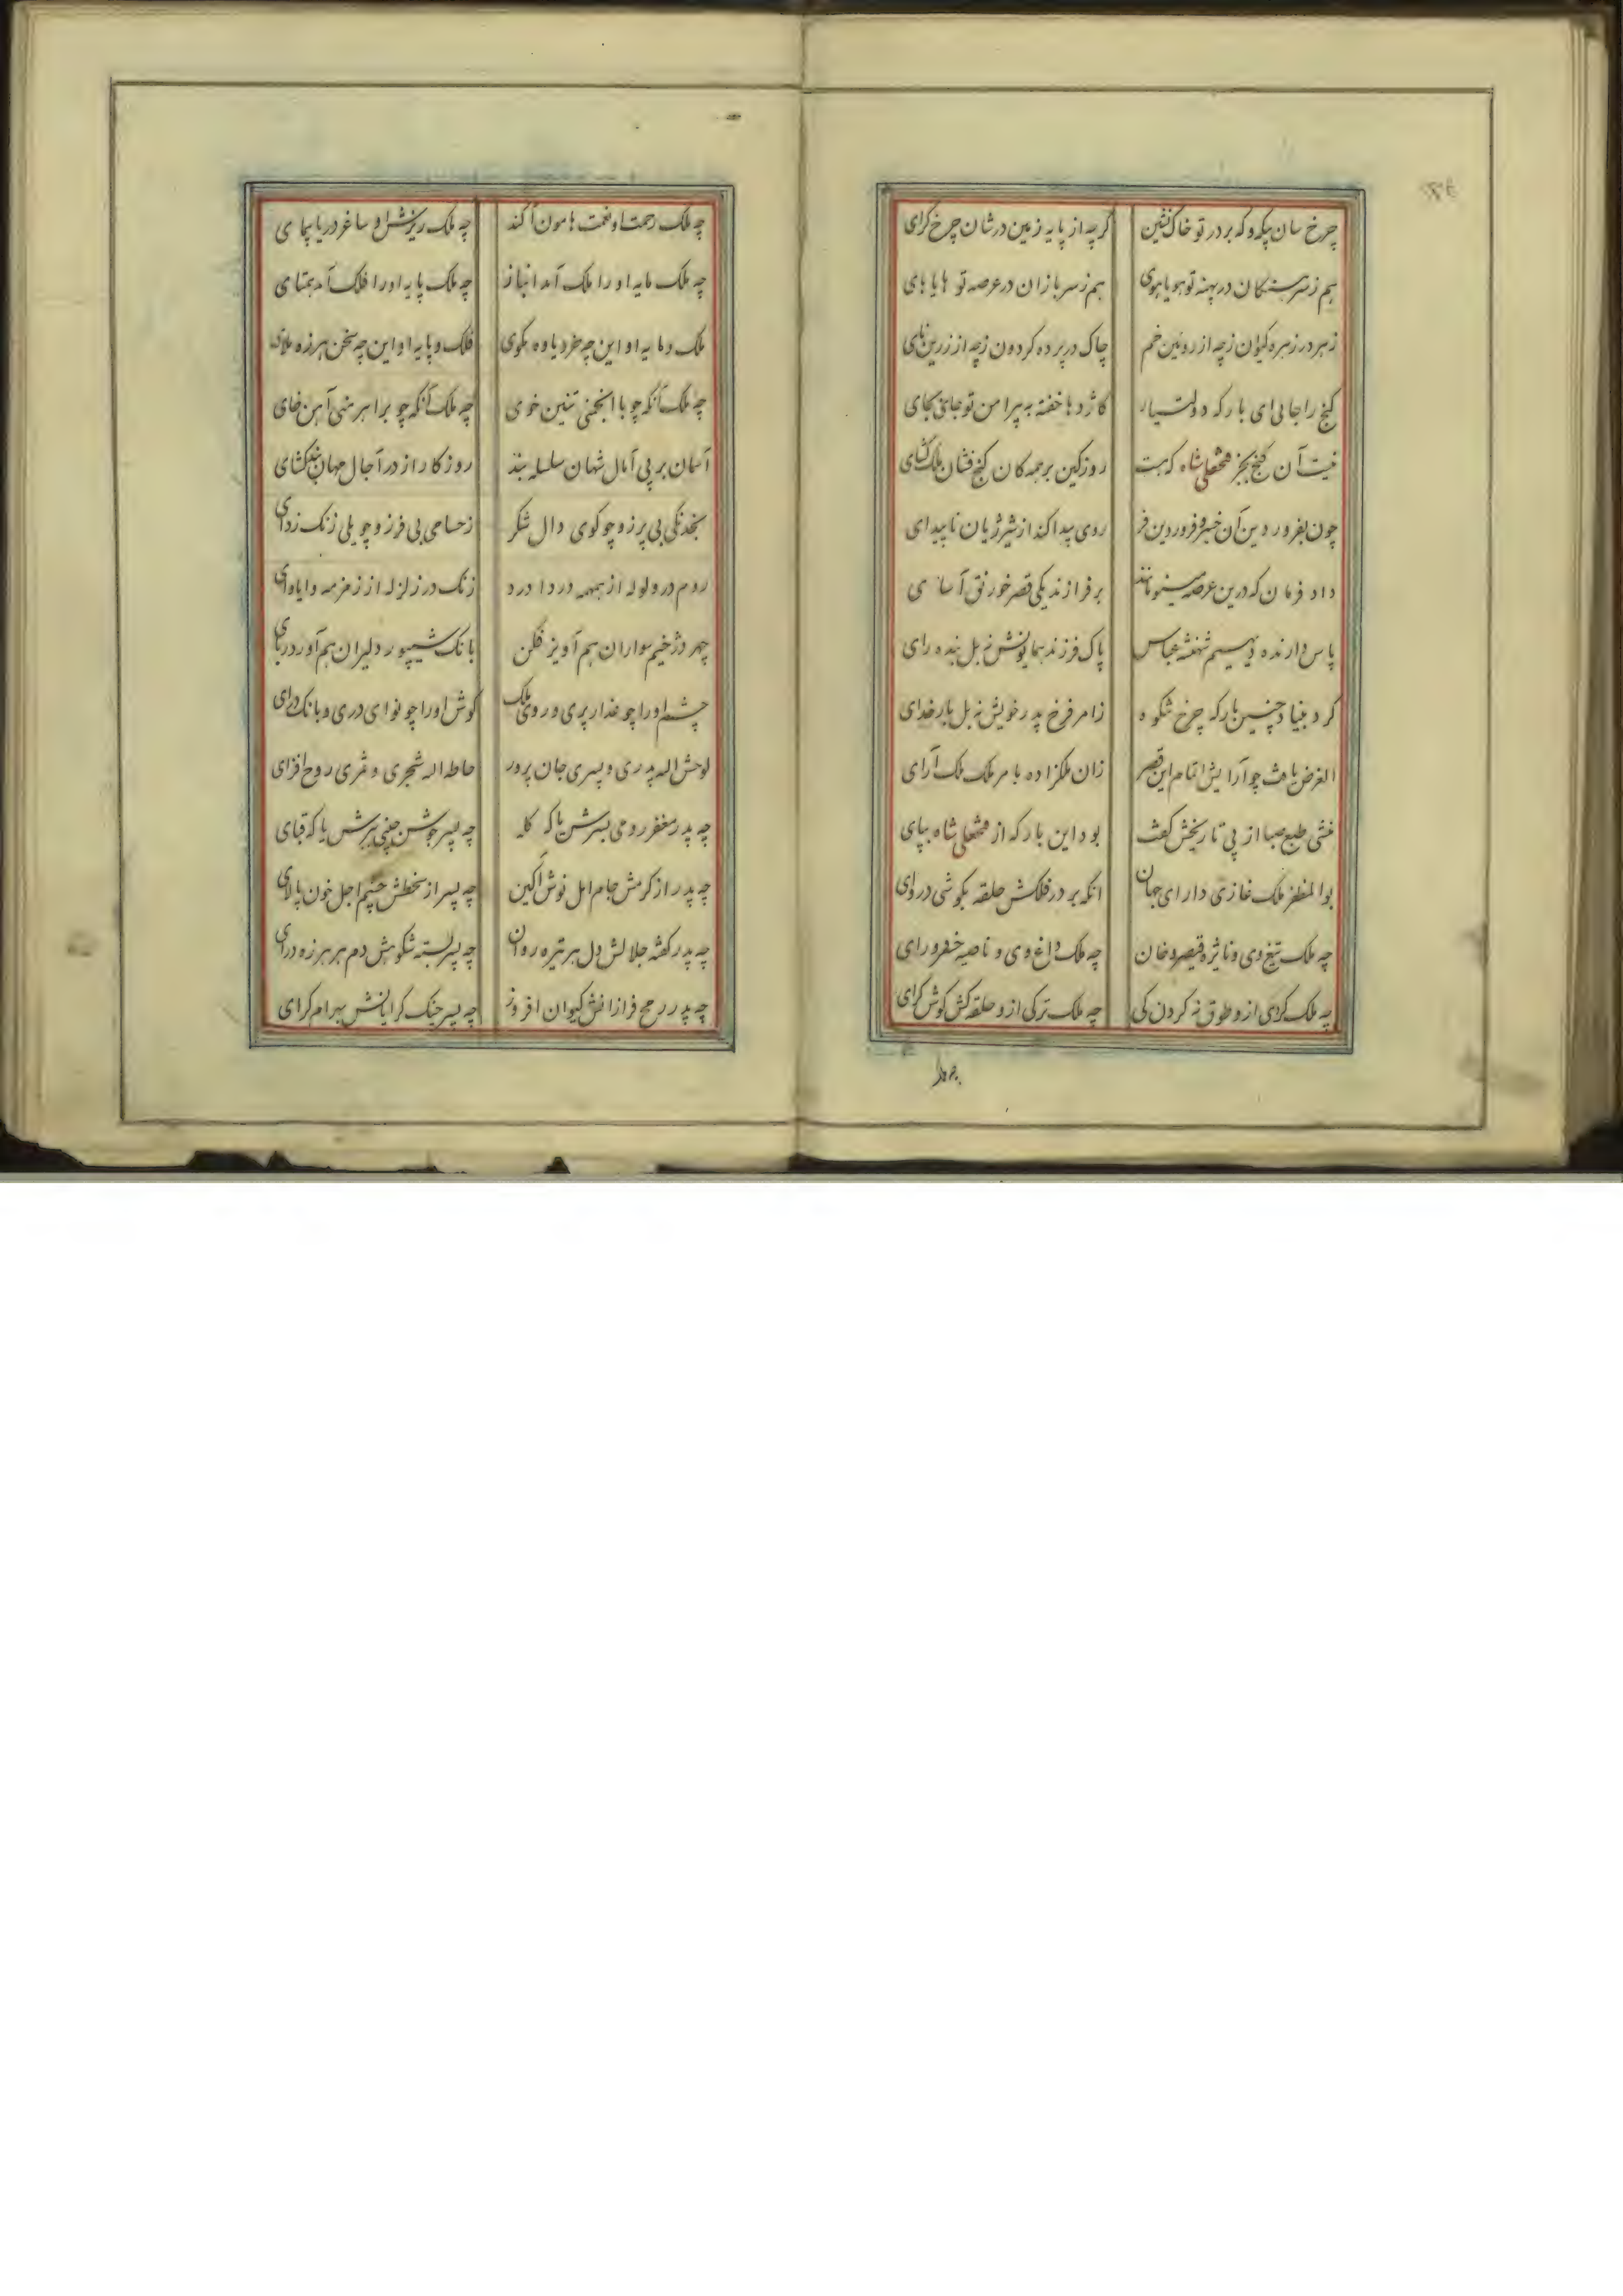 چرخ سان چکوکه بر در تو خاک نشین گرچه از پایه زمین در شان چرخ گرای
هم ز سرهنگان در پهنه تو هویاهوی هم ز سربازان در عرصه تو هایاهای
زهر در زهره کیوان ز چه از روئین خم چاک در پرده کردون ز چه از زرین نای
گنج را جایی ای بارکه دولتیار کاژدها خفته به پیرامن تو جای بجای
نیست آن گنج بجز فتحعلی شاه که هست روز کین بر همه کان گنج فشان ملک گشای
چون بفرور دین آن خسرو فروردین فر روی پیدا کند از شیر ژیان ناپیدای
داد فرمان که درین عرصه مینو مانند بر فرازند یکی قصر خورنق آسای
پاس دارنده دیهیم شهنشه عباس پاک فرزند همایونش نه بل بنده رای
کرد بنیاد چنین بارکه چرخ شکوه ز امر فرخ پدر خویش نه بل بار خدای
الغرض یافت چو آرایش اتمام این قصر زان ملکزاده بامر ملک ملک آرای
منشی طبع صبا از پی تاریخش گفت بود این بارکه از فتحعلی شاه بپای
بوالمظفر ملک غازی دارای جهان انکه بر در فلکش حلقه بکوشی دروای
چه ملک تیغ وی و نایره قیصر و خان چه ملک داغ وی و ناصیه خضر و رای
چه ملک کرای ازو طوق نه کردن کی چه ملک ترکی ازو حلقه کش کوش کرای
چه ملک
چه ملک رحمت او نعمت هامون آکند چه ملک ریزش او ساغر دریا پیمای
چه ملک مایه او را ملک آمد انباز چه ملک پایه او را فلک آمد همتای
ملک و مایه او این چه خرد یاوه مکوی فلک و پایه او این چه سخن هرزه ملای
چه ملک آنکه چو با انجمنی تنین خوی چه ملک آنکه چو برابر منی آهن خای
آسمان بر پی آمال شهان سلسله بند روزگار از در آجال مهان بند گشای
بخدنگی بی پرزو چو کوی دال شکر ز حسامی بی فرز و چو یلی زنک زدای
روم در ولوله از همهمه دردا درد زنک در زلزله از زمزمه وایاوای
چهر دژخیم سواران بهم آویز فکن بانک شیپور دلیران بهم آور دربای
چشم او را چو عذار پری و روی ملک کوش او را چو نوای دری و بانک درای
لوحش اله پدری و پسری جان پرور حاطه اله شجری و ثمری روح افزای
چه پدر مغفر رومی بسرش یا که کله چه پسر جوشن چینی ببرش یا که قبای
چه پدر از کرمش جام امل نوش آکین چه پسر از سخطش چشم اجل خون پالای
چه پدر کفته جلالش دل هر تیره روان چه پسر بسته شکوهش دم هر هرزه درای
چه پدر رمح فرازانش کیوان افروز چه پسر جنک کرایانش بهرام کرای